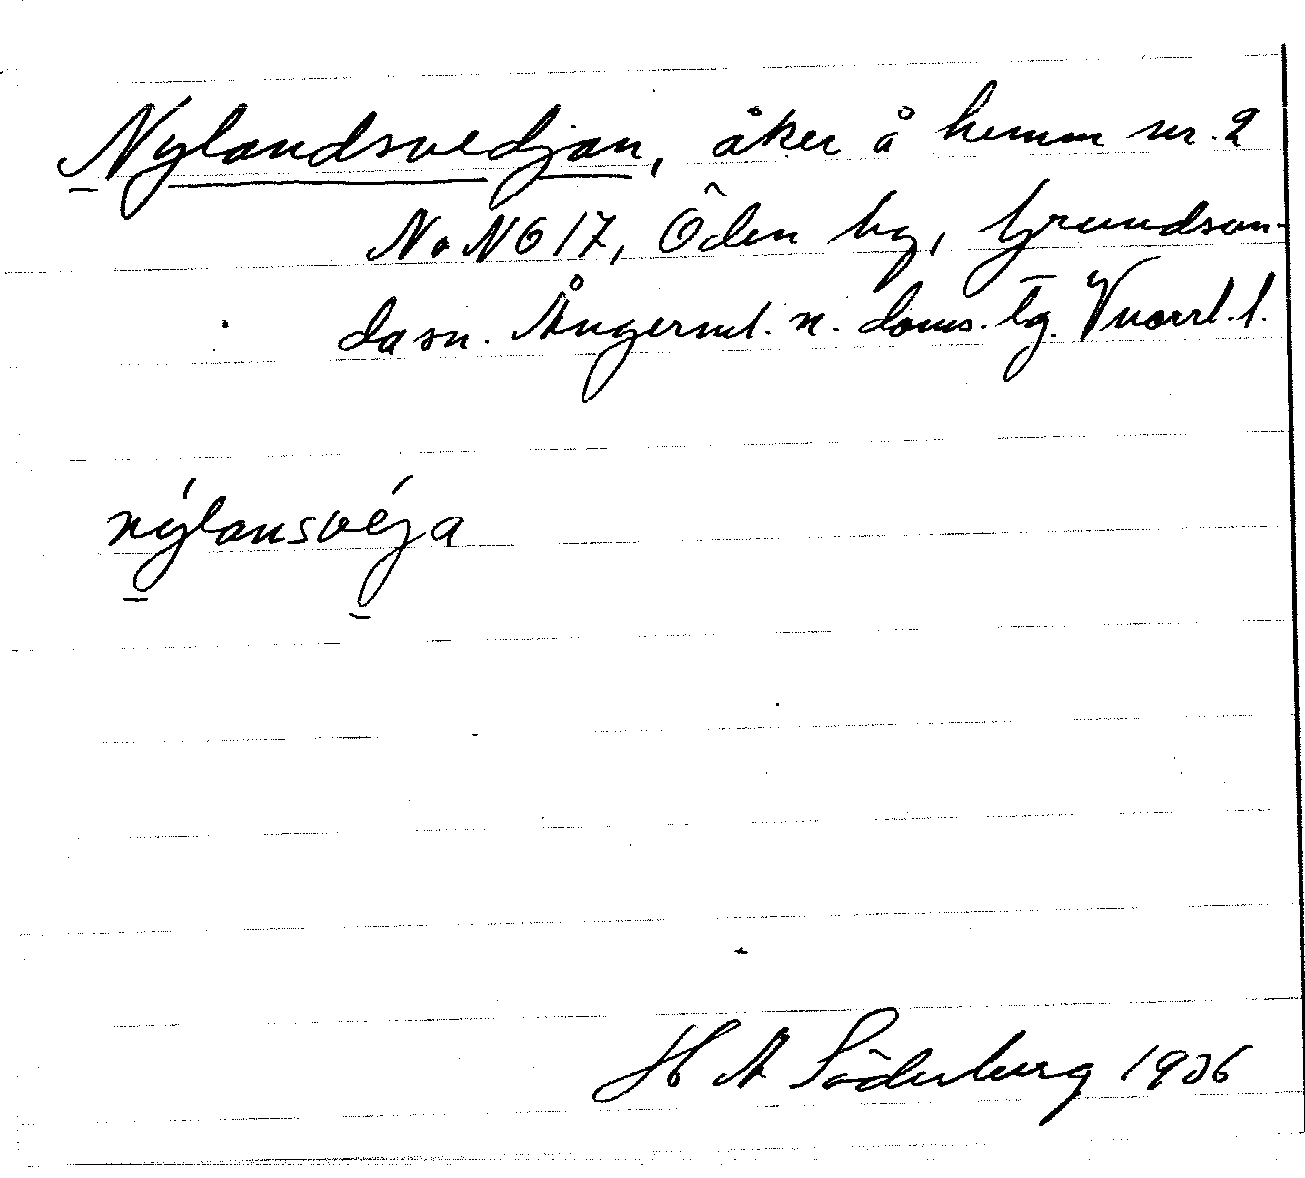 Nylandsvedjan, åker å hemm nr. 2
No N617, Öden by, Grundsun-
da sn. Ångerml. n. doms. lg. Vnorrl. l.
nýlansvéja
H A Söderberg 1936